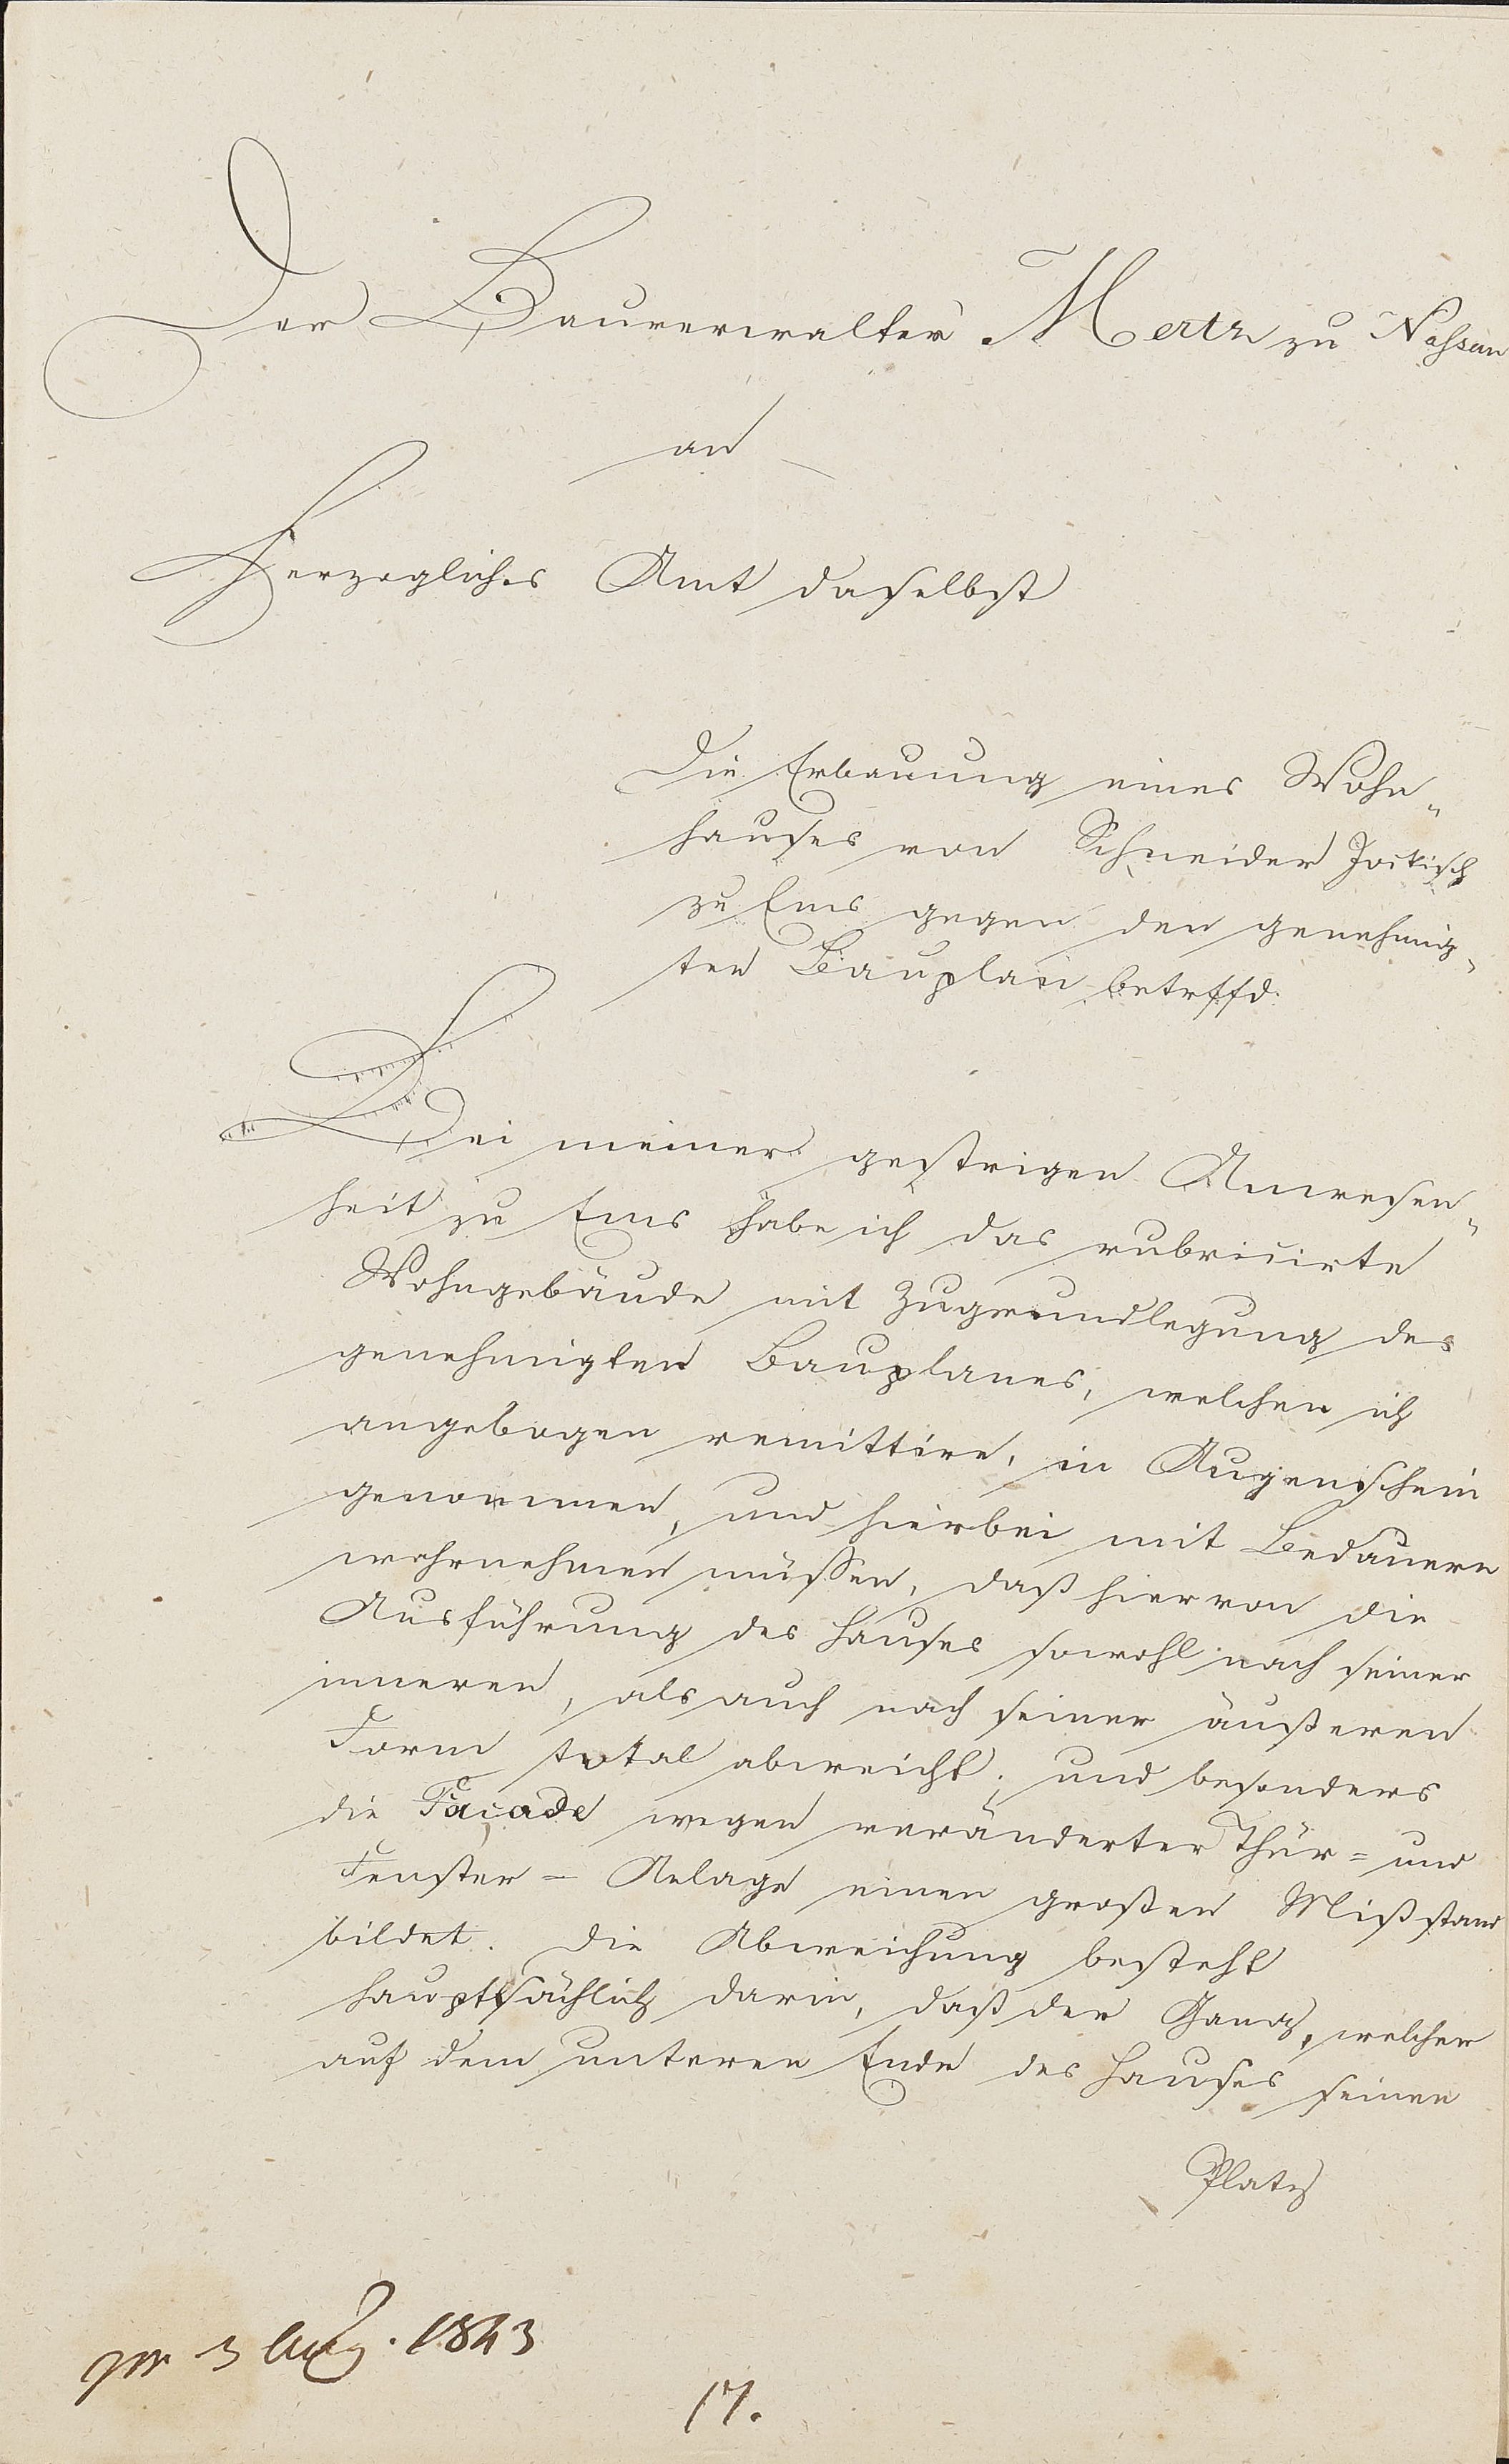 Der Bauverwalter Mertz zu Nassau
an
Herzogliches Amt daselbst
Die Erbauung eines Wohn-
hauses von Schneider
zu Ems gegen den genehmig-
ten Bauplan betrffd.
Bei meiner gestrigen Anwesen-
heit zu Ems habe ich das rubricirte
Wohngebäude mit Zugrundlegung des
genehmigten Bauplanes, welchen ich
angebogen remittire, in Augenschein
genommen, und hierbei mit Bedauern
wahrnehmen müssen, daß hiervon die
Ausführung des Hauses sowohl nach seiner
inneren, als auch nach seiner äußeren
Form total abweicht, und besonders
die Façade wegen veränderter Thür= und
Fenster= Anlage einen großen Mißstand
bildet. Die Abweichung besteht
hauptsächlich darin, daß der Gang, welcher
auf dem unteren Ende des Hauses seinen
Platz
pr 3 Aug. 1843
17.